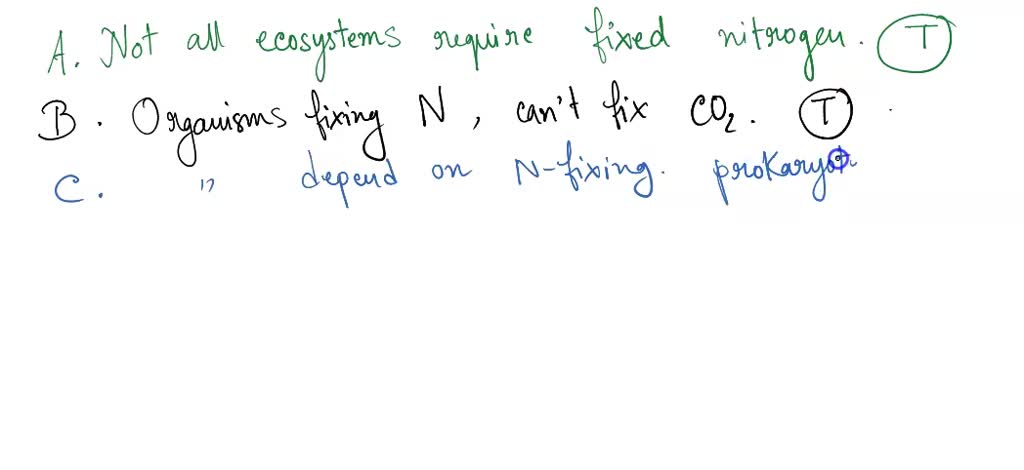 A. Not all ecosystems require fixed nitrogen. T
B. Organisms fixing N, can't fix CO2. T
C. " depend on N-fixing. prokaryot